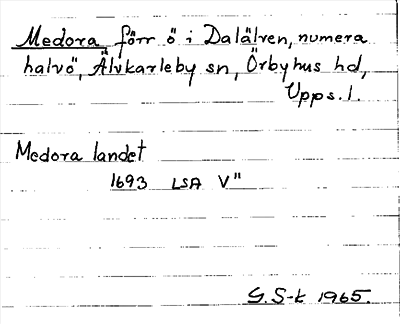 Medora förr ö i Dalälven, numera
halvö, Älvkarleby sn, Örbyhus hd,
Upps. l.
Medora landet
1693 LSA V"
G. S-k 1965.